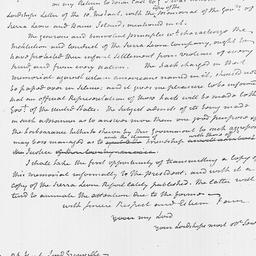 on my return to
Lordships letter of the 10. Instant, with the memorial of the Gov.r of
Sierra Leone and Bance Island, mentioned in it.
The generous and benevolent principles w.ch characterize the
Institution and conduct of the Sierra Leone Company, ought to
have protected their infant settlement from violence of every
kind, and from every nation. The facts charged in that
Memorial against certain americans named in it, should not
be passed over in silence; and it gives me pleasure to be informed
that an official Representation of those facts will be made to the
Gov.t of the United States. The subject admits of its being made
in such a manner as to answer more than one good purpose
the forbearance hitherto shewn by this government to such aggressors
may be so managed as to friendship
and Justice
I shall take the first opportunity of transmitting a Copy of
this memorial informally to the President, and with it a
copy of the Sierra Leone Report lately published. The latter will
tend to animate the attention due to the former
with sincere Respect and Esteem I am
your my Lord
your Lordships most ob.t Serv
Lord Grenville